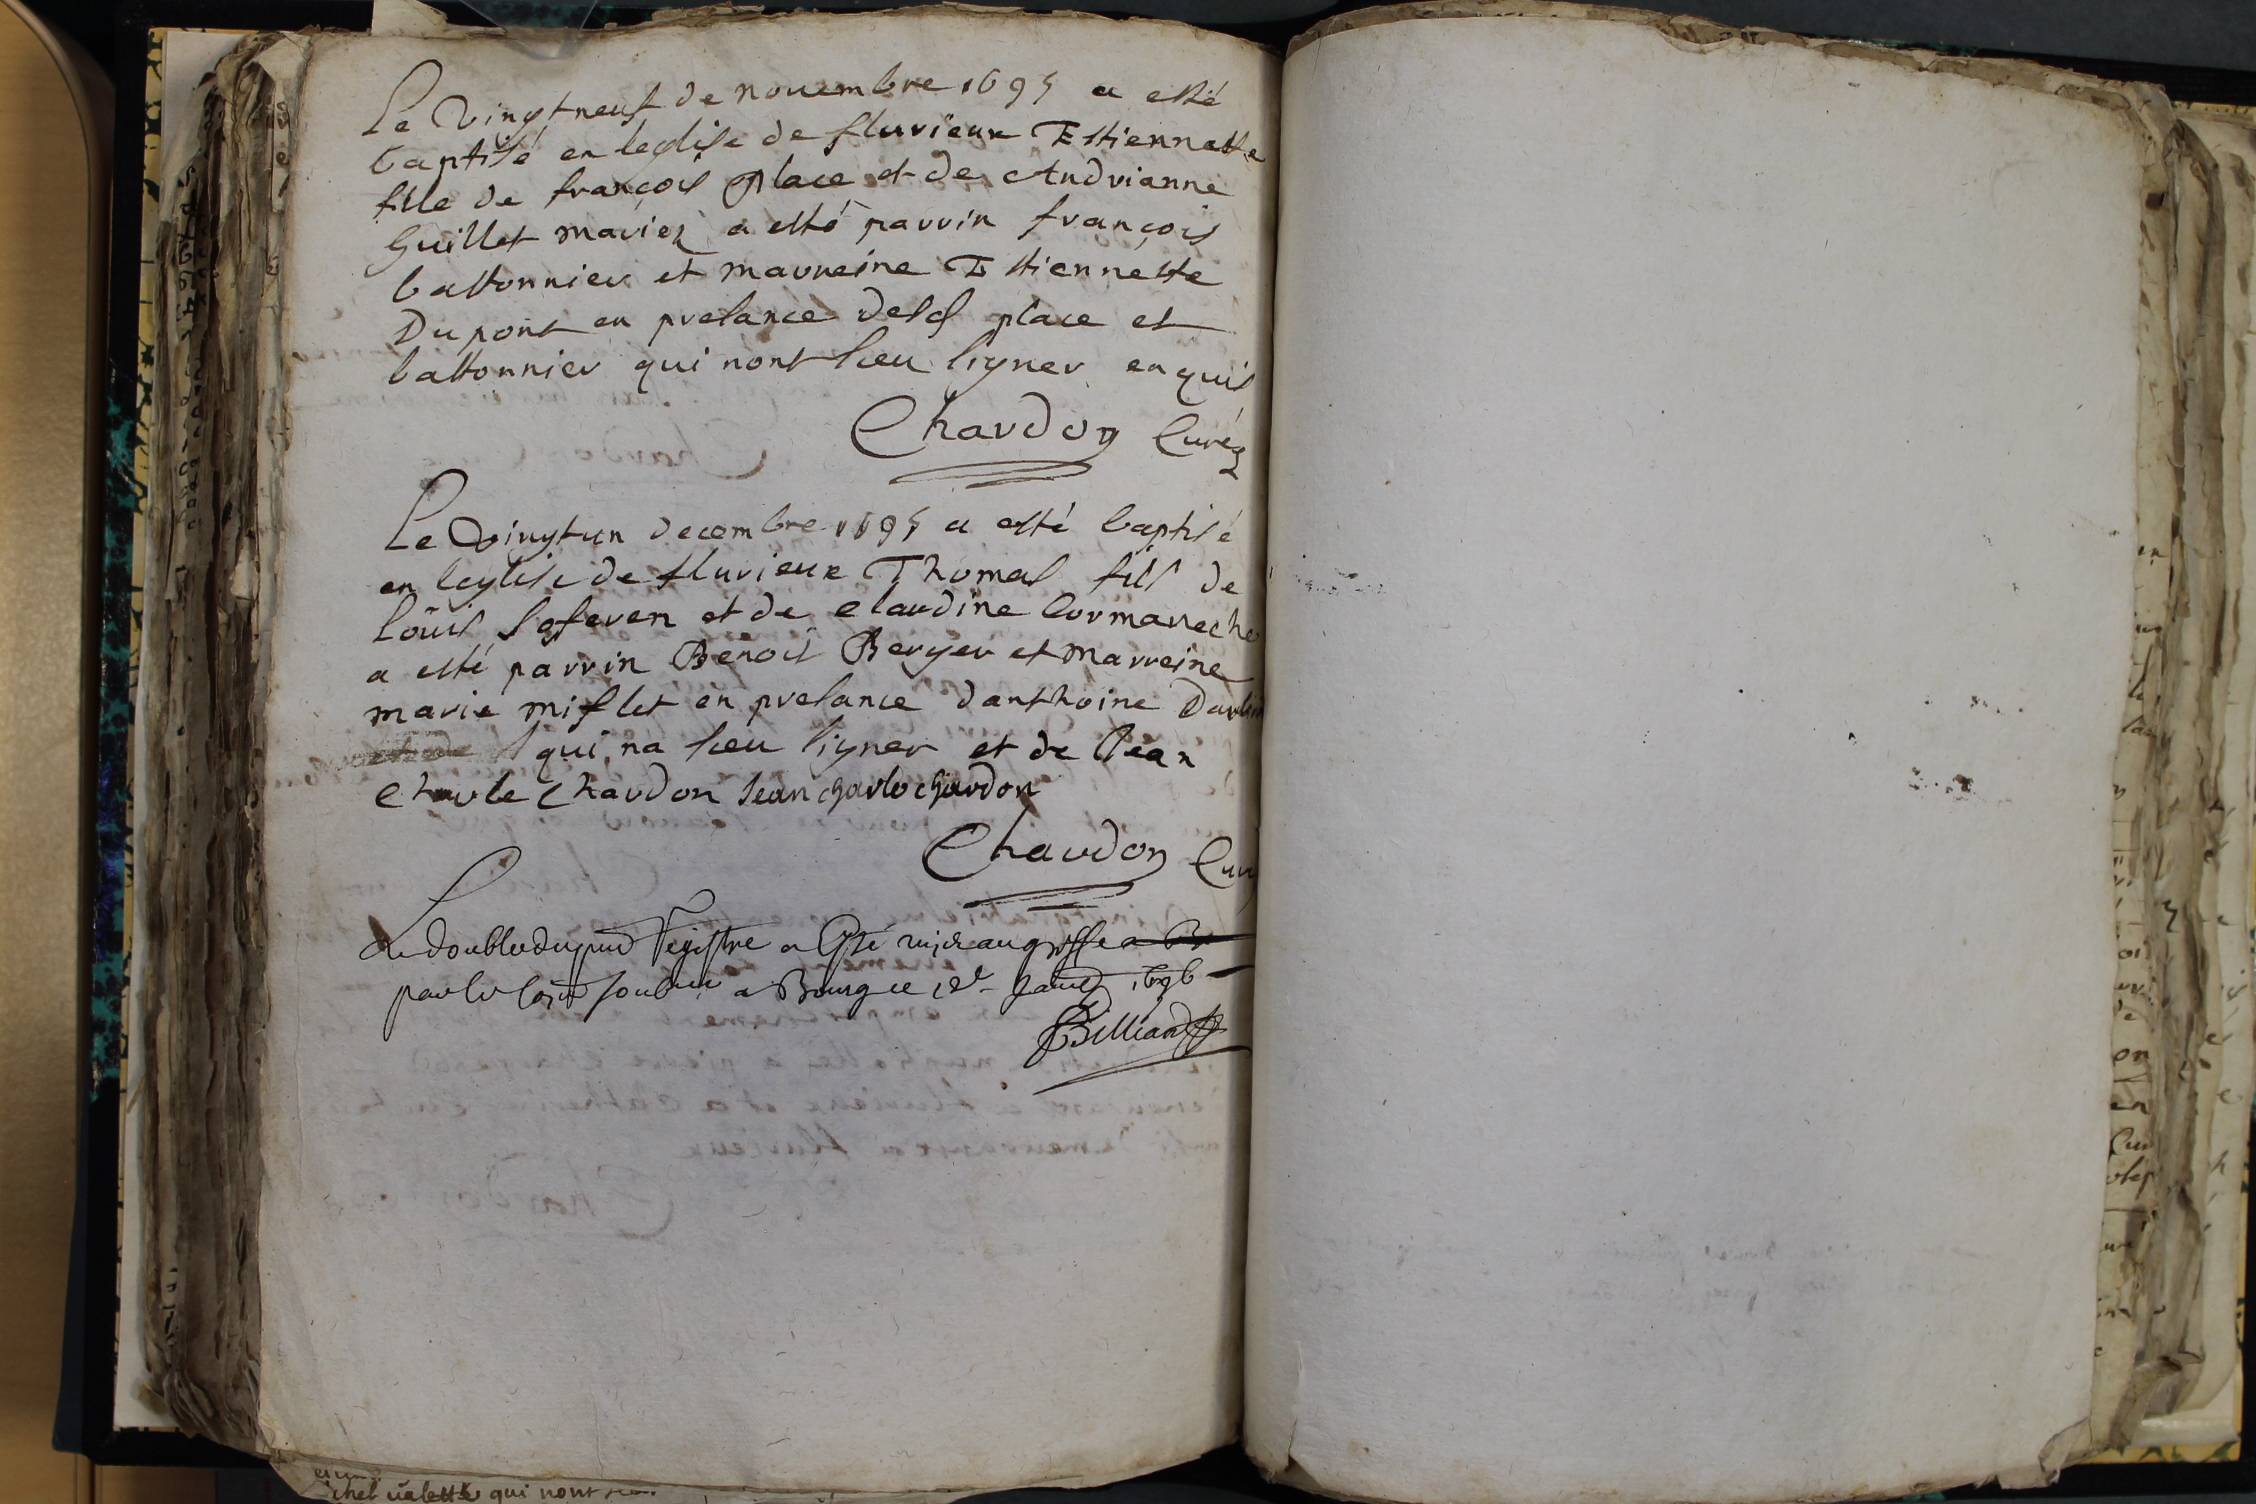 Le vingt neuf de novembre 1695 a esté
baptisé en leglise de flurieux Estiennette
fille de françois place et de Andrianne
Guillet mariez a esté parrin françois
bastonnier et marreine Estiennette
Dupont en presance desd place et
bastonnier qui nont sceu signer enquis
Chardon Curé
Le vingt un decembre 1695 a esté baptisé
en leglise de flurieux Thomas fils de
loüis et de claudine Cormareche
a esté parrin Benoist Berger et marreine
marie miflet en presance danthoine
qui na sceu signer et de Jean
charle chardon Jean charle chardon
Chardon Curé
Le double du pnt Registre a esté mis au greffe
par le soubne a Bourg ce 1696
Billiard